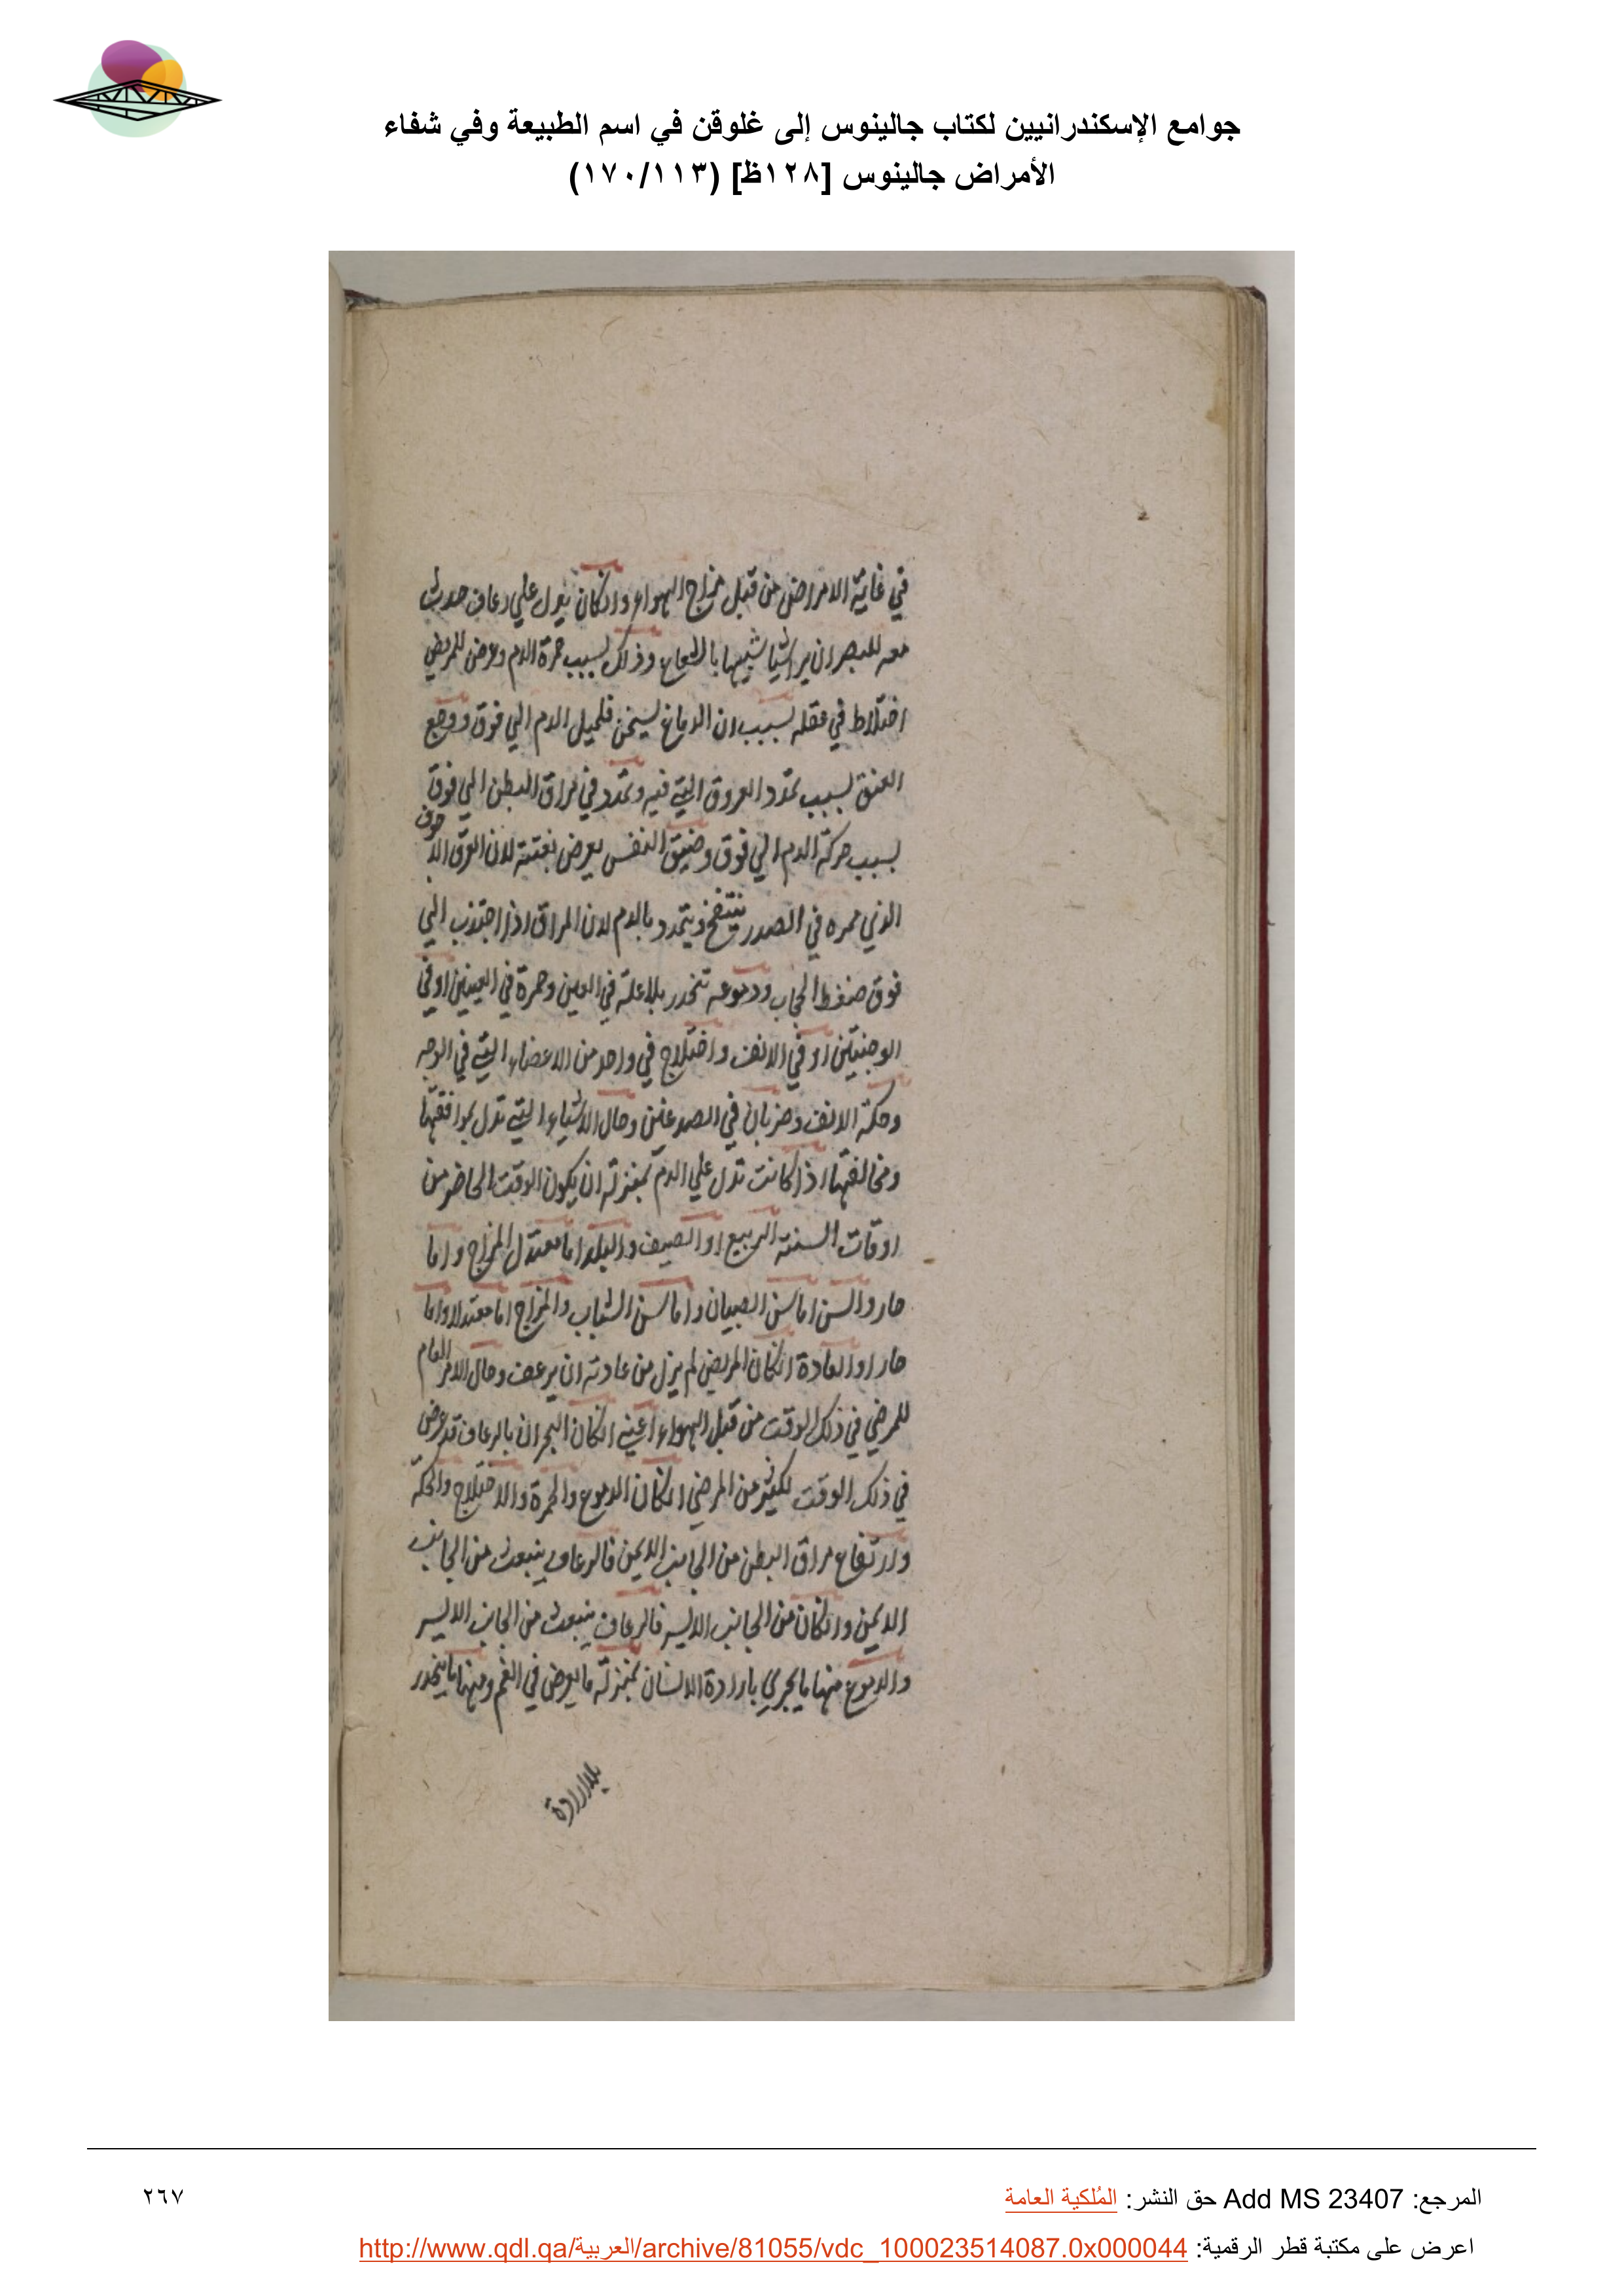 جوامع الإسكندرانيين لكتاب جالينوس إلى غلوقن في اسم الطبيعة وفي شفاء
الأمراض جالينوس [١٢٨ظ] (١٧٠/١١٣)
في غاية الامراض من قبل مزاج الهواء وان كان يدل علي رعاف حدث
معه للبصر ان يرا شيا شبيها بالشعاع وذلك بسبب حمرة الدم وعرض للمريض
اختلاط في عقله بسبب ان الدماغ يسخن فلميل الدم الي فوق ووجع
العنق بسبب تمدد العروق التي فيه وتمدد في مراق البطن الي فوق
بسبب حركة الدم الي فوق وضيق النفس يعرض بغتتة لان العرق الاجوف
الذي ممره في الصدر ينتفخ ويتمدد بالدم لان المراق اذا اجتذب الي
فوق ضغط الحجاب ودموعه تنحدر بلا علة في العين وحمرة في العينين او في
الوجنتين او في الانف واختلاج في واحد من الاعضاء التي في الوجه
وحكة الانف وضربان في الصدغين وحال الاشياء التي تدل بموافقتها
ومخالفتها اذا كانت تدل علي الدم بمنزلة ان يكون الوقت الحاضر من
اوقات السنة الربيع او الصيف والبلد اما معتدل المزاج واما
حار والسن اما سن الصبيان واما سن الشباب والمزاج اما معتدلا واما
حارا والعادة ان كان المريض لم يزل من عادته ان يرعف وحال الامر العام
للمرضي في ذلك الوقت من قبل الهواء اعني ان كان البحران بالرعاف قد عرض
في ذلك الوقت لكثير من المرضي ان كان الدموع والحمرة والاختلاج والحكة
وارتفاع مراق البطن من الجانب الايمن فالرعاف ينبعث من الجانب
الايمن وان كان من الجانب الايسر فالرعاف ينبعث من الجانب الايسر
والدموع منها ما يجري بارادة الانسان بمنزلة ما يعرض في الغم ومنها ما ينحدر
بلا ارادة
المرجع: Add MS 23407 حق النشر: المُلكية العامة
٢٦٧
اعرض على مكتبة قطر الرقمية: http://www.qdl.qa/العربية/archive/81055/vdc_100023514087.0x000044